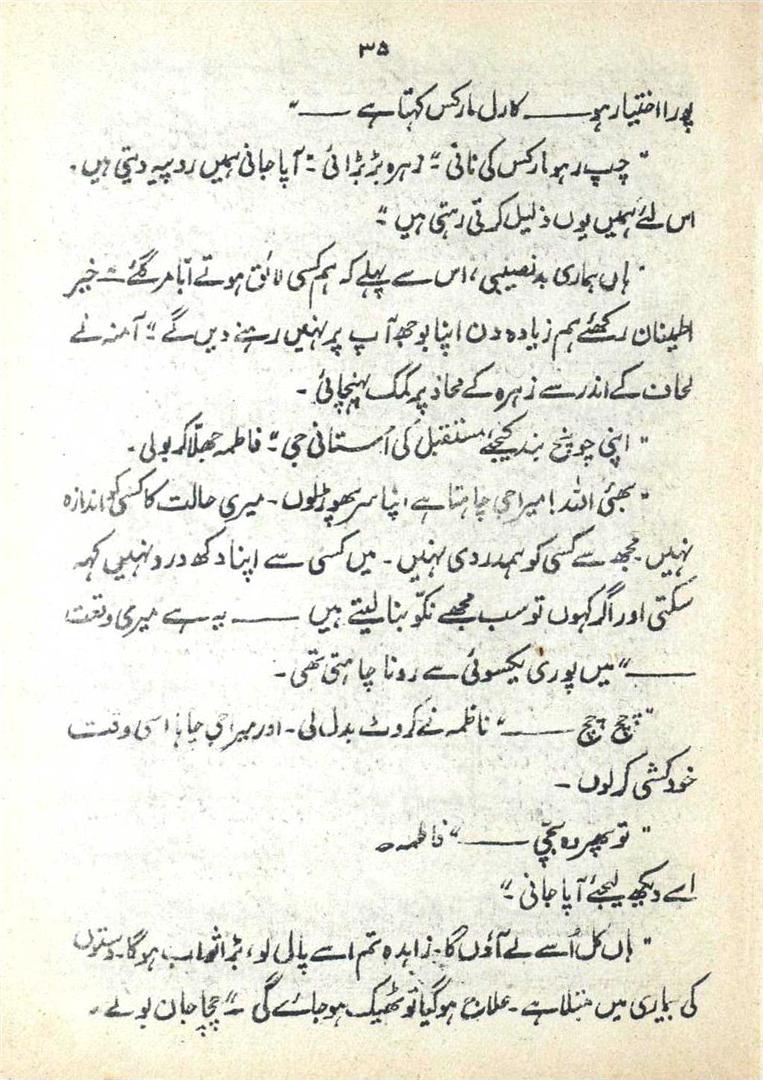 ۳۵
پورا اختیار ہو ــــــ کارل مارکس کہتا ہے ــــــ"
"چپ رہو مارکس کی نانی۔" زہرہ بڑبڑائی۔ "آپا جانی ہمیں روپیہ دیتی ہیں۔
اس لئے ہمیں یوں ذلیل کرتی رہتی ہیں۔"
"ہاں ہماری بدنصیبی، اس سے پہلے کہ ہم کسی لائق ہوتے ابا مر گئے ــ خیر
اطمینان رکھئے ہم زیادہ دن اپنا بوجھ آپ پر نہیں رہنے دیں گے۔" آمنہ نے
لحاف کے اندر سے زہرہ کے محاذ پر کمک پہنچائی۔
"اپنی چونچ بند کیجئے مستقبل کی اُستانی جی۔" فاطمہ جھلّا کر بولی۔
"بھئی اللہ! میرا جی چاہتا ہے اپنا سر پھوڑ لوں۔ میری حالت کا کسی کو اندازہ
نہیں۔ مجھ سے کسی کو ہمدردی نہیں۔ میں کسی سے اپنا دکھ درد نہیں کہہ
سکتی اور اگر کہوں تو سب مجھے نکّو بنا لیتے ہیں ــــــ یہ ہے میری وقعت
ــــــ" میں پوری یکسوئی سے رونا چاہتی تھی۔
"چچ چچ ــــــ" ناظمہ نے کروٹ بدل لی۔ اور میرا جی چاہا اسی وقت
خودکشی کر لوں۔
"تو پھر وہ بچّی ــــــ" فاطمہ۔
اے دیکھ لیجئے آپا جانی۔"
"ہاں کل اُسے لے آؤں گا۔ زاہدہ تم اسے پال لو، بڑا ثواب ہو گا۔ دستوں
کی بیماری میں مبتلا ہے۔ علاج ہو گیا تو ٹھیک ہو جائے گی۔" چچا جان بولے۔